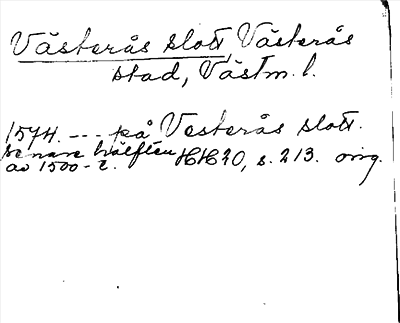 Västerås slott, Västerås
stad, Västm. l.
1574. --- på Vesterås slott.
Senare hälften HH20, s. 213. orig.
av 1500-t.